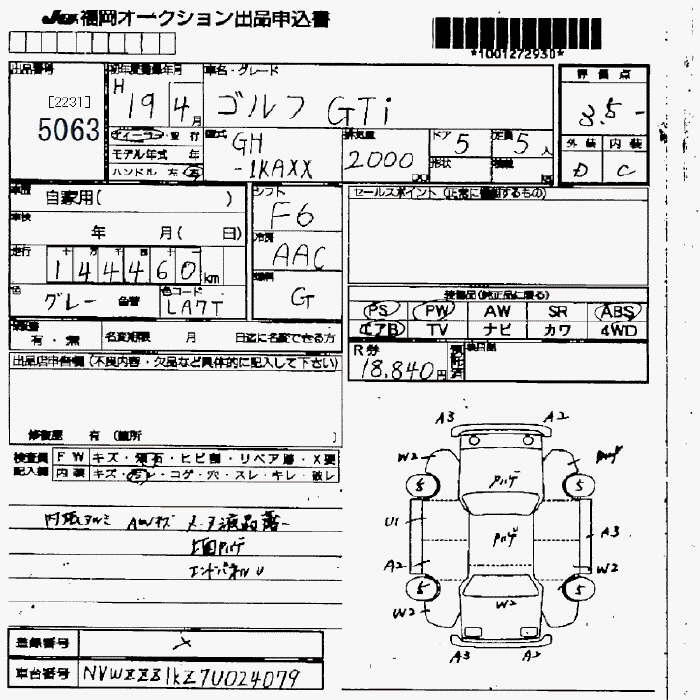 JU福岡オークション出品申込書
*1001272930*
出品番号
[2231]
5063
初年度登録年月
H 19 4月
車名・グレード
ゴルフ GTi
評価点
3.5
外装 内装
D C
ディーラー・並行
モデル年式 年
ハンドル 左・右
型式
GH
-1KAXX
排気量
2000 cc
ドア 5
形状
定員 5人
車歴
自家用( )
車検
年 月( 日)
走行
144460km
色
グレー 色替
色コード
LA7T
シフト
F6
冷房
AAC
燃料
G
セールスポイント(正常に機能するもの)
装備品(純正品に限る)
PS PW AW SR ABS
エアB TV ナビ カワ 4WD
有・無 名変期限 月 日迄に名変できる方
R券
18.840円
出品店申告欄(不良内容・欠品など具体的に記入して下さい)
修復歴 有(箇所 )
検査員記入欄
FW キズ・飛石・ヒビ割・リペア済・X要
内装 キズ・汚レ・コゲ・穴・スレ・キレ・破レ
エンドパネルU
A3 A2
W2
5 5
U1
A2
A3
W2
5 5
W2
W2
A3 A2
登録番号
車台番号 NVWZZZ1KZ7U024079